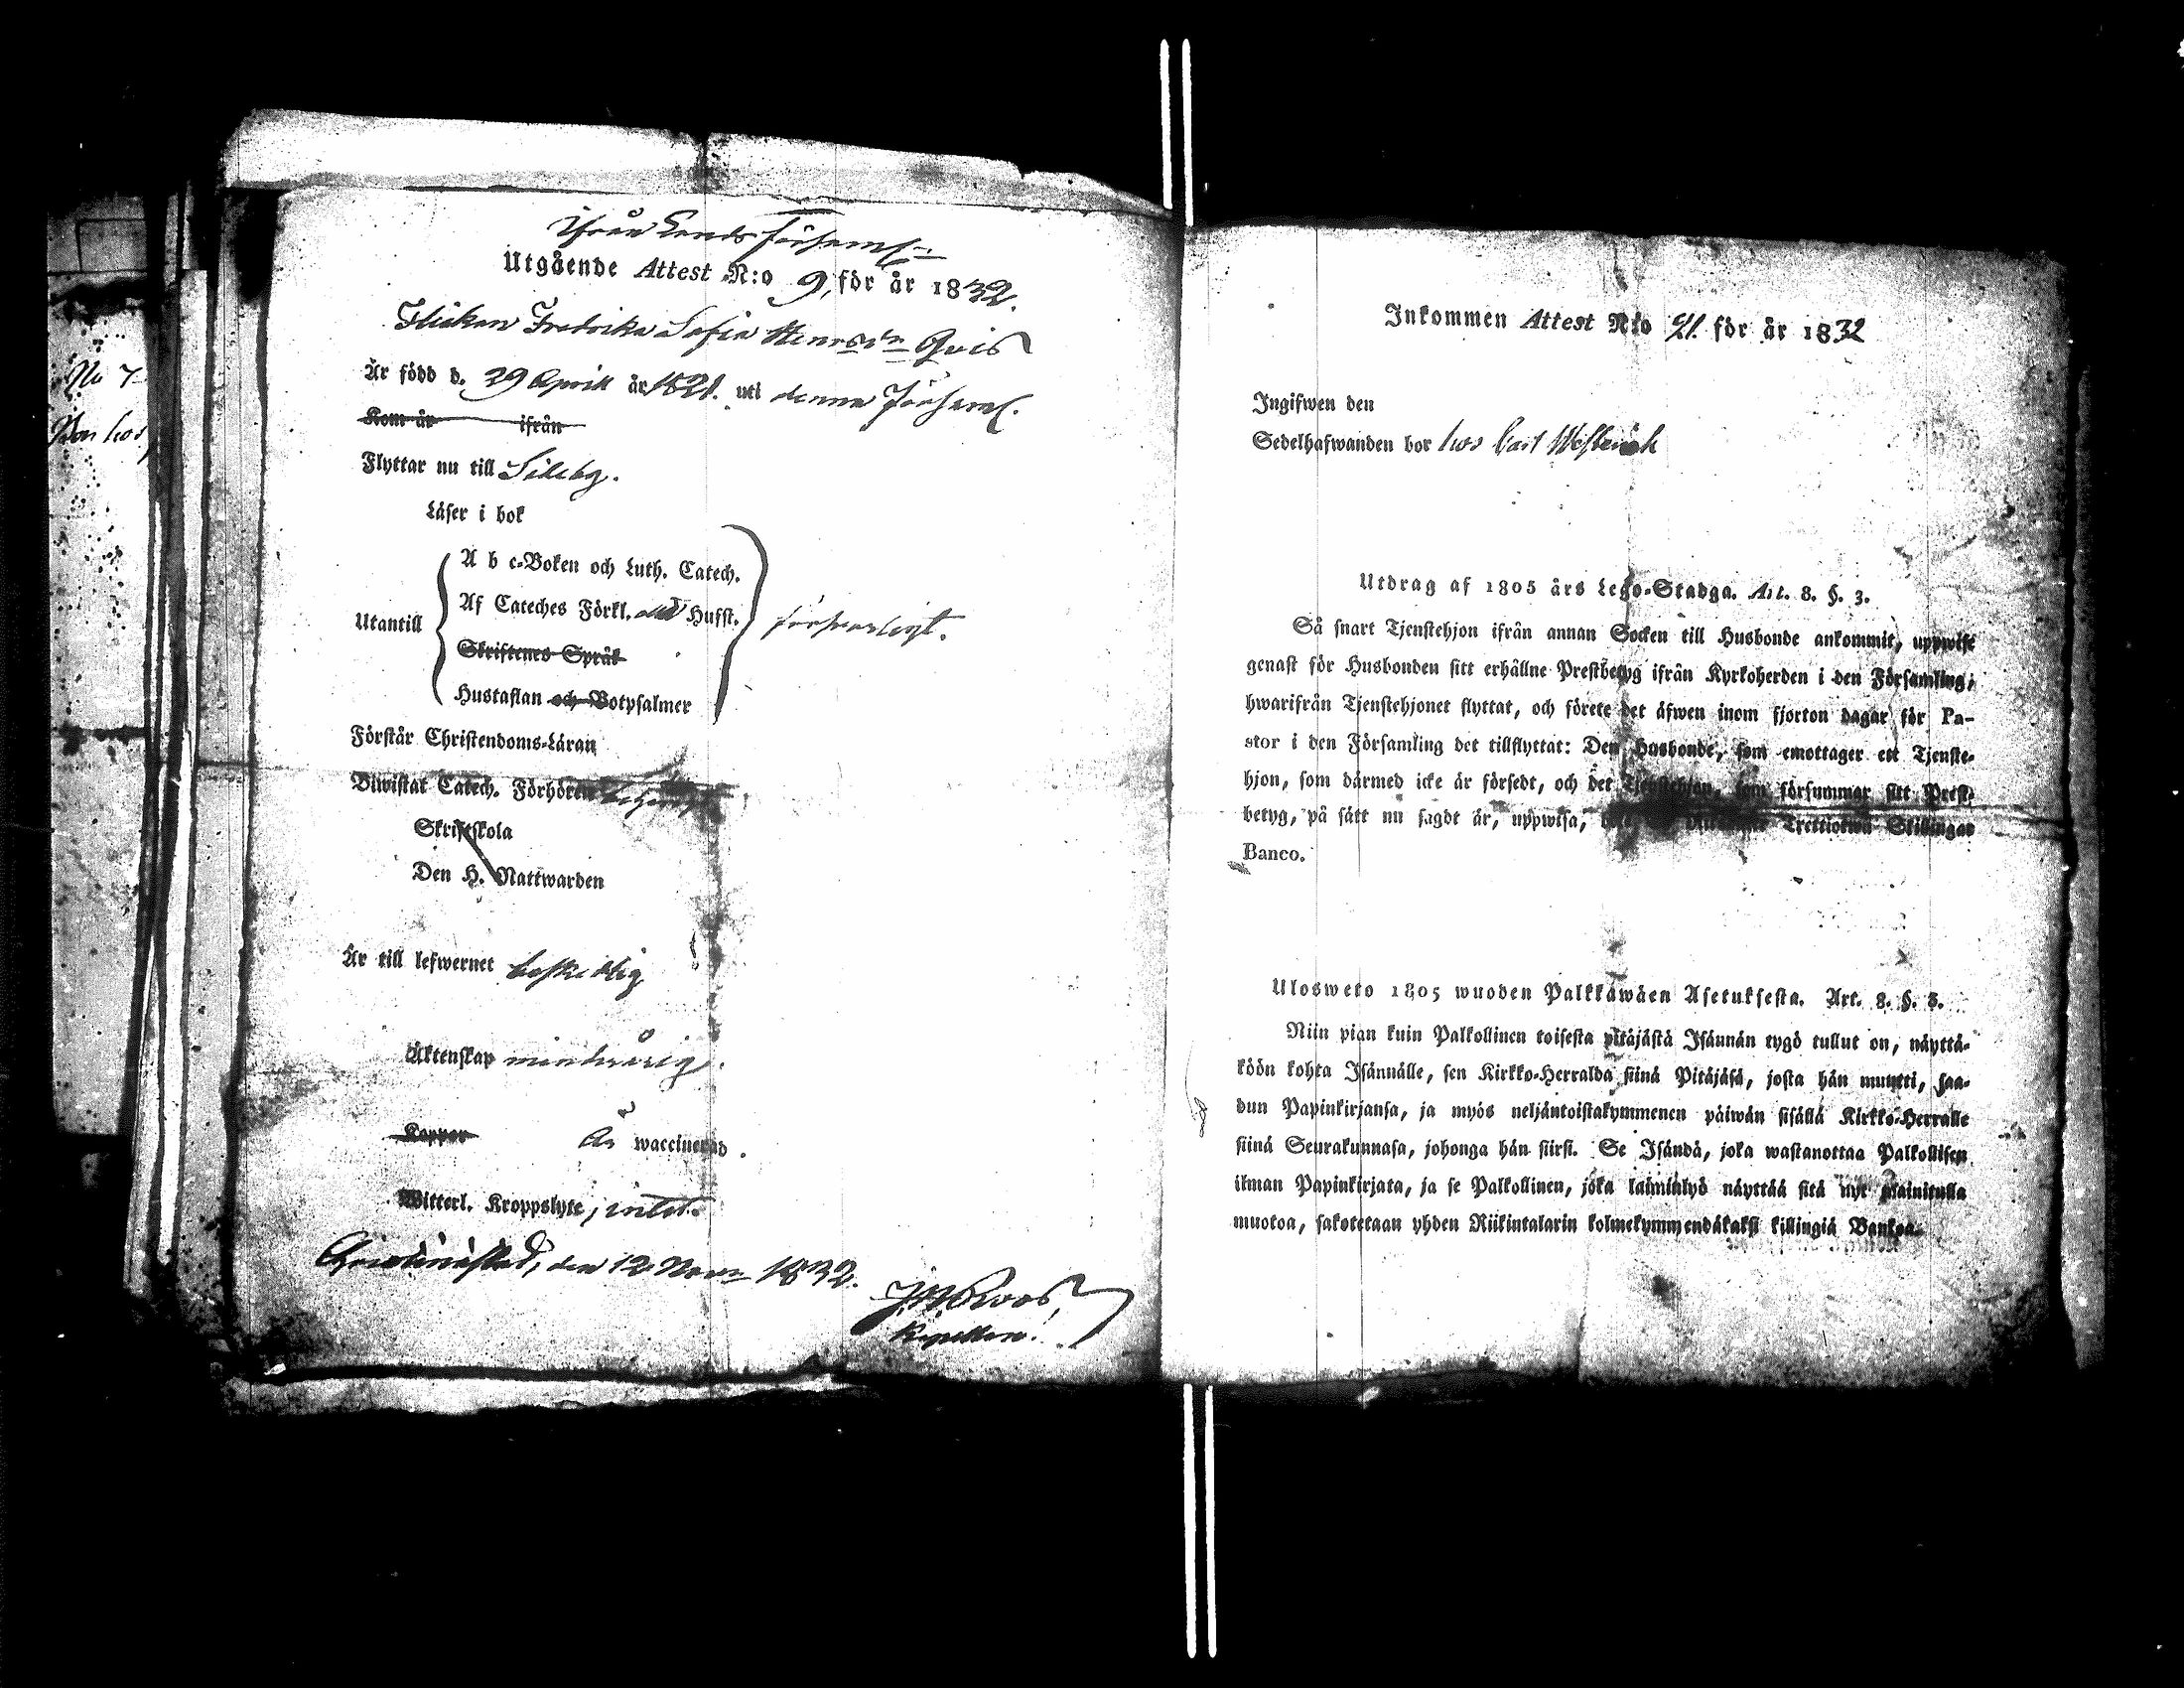 No 7
Bor hos
Ifrån Lands Församl:n
Utgående Attest N:o 9, för år 1832.
Flickan Fredrika Sofia Henrsdr Qvis
Är född d. 29 April år 1821. uti denna Församl.
Kom år ifrån
Flyttar nu till Sideby.
Läser i bok
A b c-Boken och Luth. Catech.
Af Cateches Förkl. Hufst.
Utantill försvarligt.
Skriftenes Språk
Hustaflan och Botpsalmer
Förstår Christendoms-Läran
Biwistat Catech. Förhören
Skriftskola
Den H. Nattwarden
Är till lefwernet beskedlig
Äktenskap minderårig.
Koppor Är waccinerad.
Witterl. Kroppslyte, intet.
Christinæstad, den 12 Novr 1832.
Roos
Kapellan.
Inkommen Attest N:o för år 1832
Ingifwen den
Sedelhafwanden bor hos Carl
Utdrag af 1805 års Lego-Stadga. Art. 8. §. 3.
Så snart Tjenstehjon ifrån annan Socken till Husbonde ankommit, uppwise
genast för Husbonden sitt erhållne Prestbetyg ifrån Kyrkoherden i den Församling,
hwarifrån Tjenstehjonet flyttat, och förete det äfwen inom fjorton dagar för Pa-
stor i den Församling det tillflyttat: Den Husbonde, som emottager ett Tjenste-
hjon, som därmed icke är försedt, och det Tjenstehjon, som försummar sitt Prest-
betyg, på sätt nu sagdt är, uppwisa, Trettiotwå Skillingar
Banco.
Ulosweto 1805 wuoden Palkkawäen Asetuksesta. Art. 8. §. 3.
Niin pian kuin Palkollinen toisesta pitäjästä Isännän tygö tullut on, näyttä-
köön kohta Isännälle, sen Kirkko-Herralda siinä Pitäjäsä, josta hän muutti, saa-
dun Papinkirjansa, ja myös neljäntoistakymmenen päiwän sisällä Kirkko-Herralle
siinä Seurakunnasa, johonga hän siirsi. Se Isändä, joka wastanottaa Palkollisen
ilman Papinkirjata, ja se Palkollinen, joka laiminlyö näyttää sitä nyt mainitulla
muotoa, sakotetaan yhden Riikintalarin kolmekymmendäkaksi killingiä Bankoa.